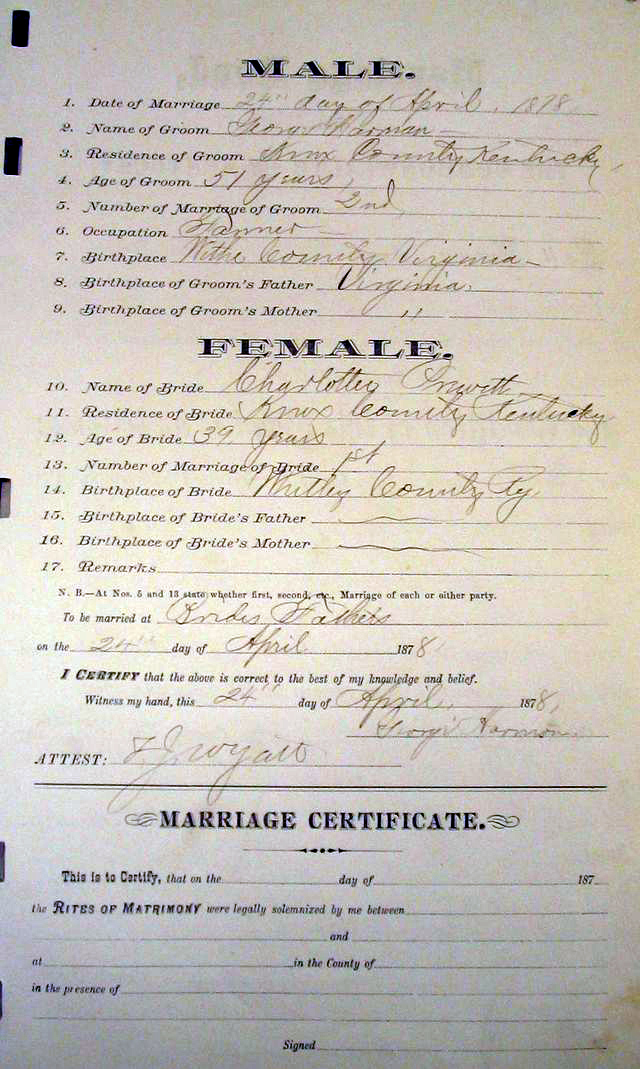 MALE.
1. Date of Marriage 24th day of April, 1878
2. Name of Groom George Harman
3. Residence of Groom Knox County Kentucky,
4. Age of Groom 51 years,
5. Number of Marriage of Groom 2nd,
6. Occupation Farmer
7. Birthplace Withe County, Virginia
8. Birthplace of Groom's Father Virginia.
9. Birthplace of Groom's Mother "
FEMALE.
10. Name of Bride Charlotte
11. Residence of Bride Knox County Kentucky
12. Age of Bride 39 years
13. Number of Marriage of Bride 1st
14. Birthplace of Bride Whitley County Ky
15. Birthplace of Bride's Father
16. Birthplace of Bride's Mother
17. Remarks
N. B.—At Nos. 5 and 13 state whether first, second, etc., Marriage of each or either party.
To be married at Brides Fathers
on the 24th day of April 1878
I CERTIFY that the above is correct to the best of my knowledge and belief.
Witness my hand, this 24" day of April, 1878,
George Harmon
ATTEST: Wyatt
MARRIAGE CERTIFICATE.
This is to Certify, that on the day of 187
the RITES OF MATRIMONY were legally solemnized by me between
and
at in the County of
in the presence of
Signed